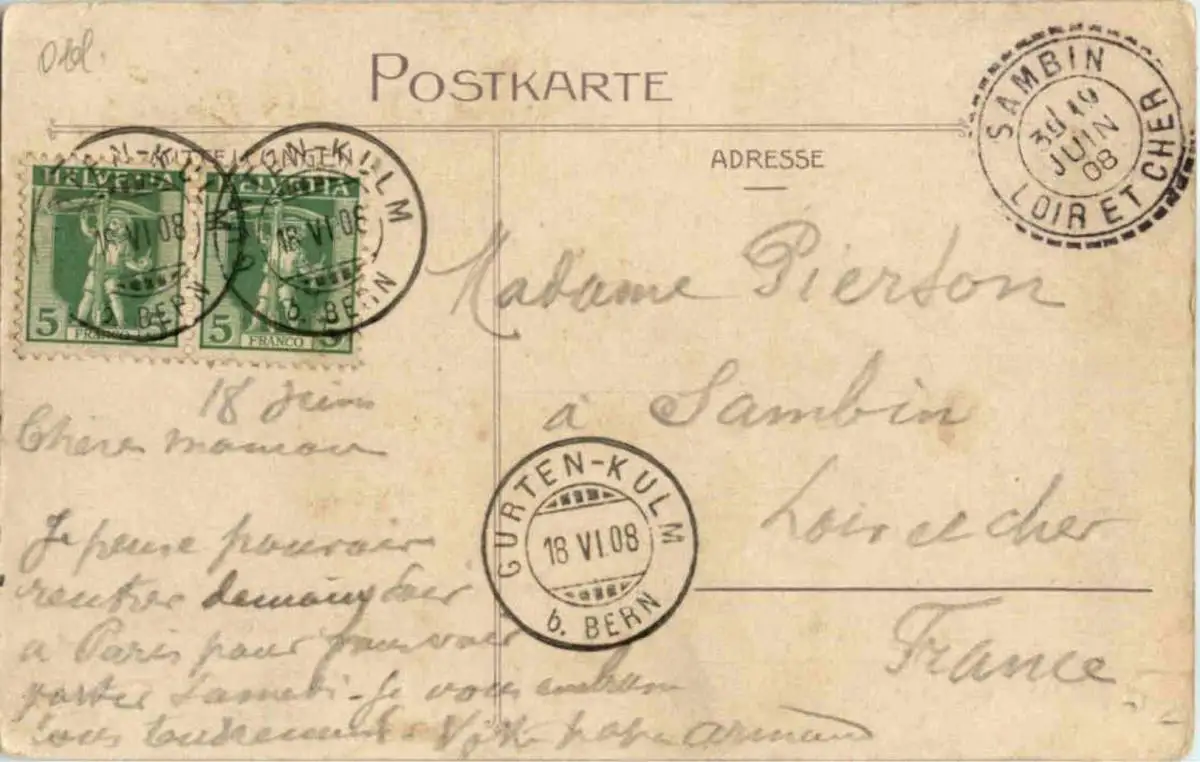 Obl.
POSTKARTE
MITTEILUNGEN
ADRESSE
SAMBIN
3E 19
JUIN
08
LOIR ET CHER
HELVETIA HELVETIA
GURTEN-KULM
18 VI 08
b. BERN
GURTEN-KULM
18 VI 08
b. BERN
5 FRANCO
5 FRANCO 5
Madame Pierson
à Sambin
Loir et cher
France
GURTEN-KULM
18 VI.08
b. BERN
18 juin
Chère maman
Je pense pouvoir
rentrer demain soir
à Paris pour pouvoir
partir Samedi - Je vous embrasse
tous tendrement. Votre papa armand